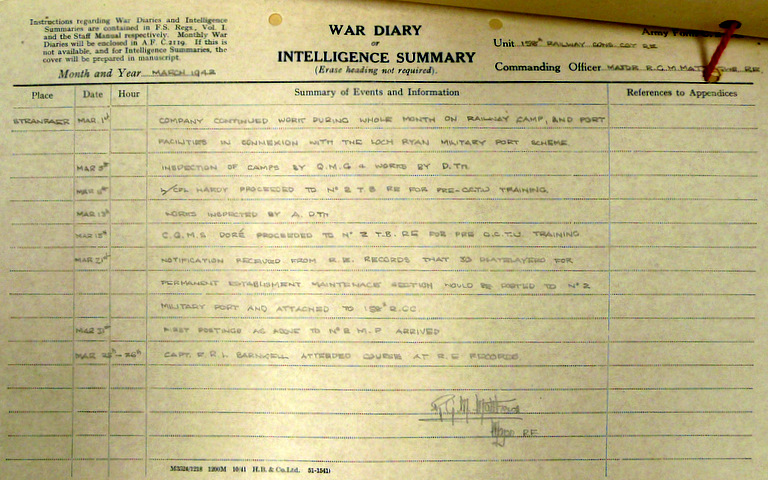 Instructions regarding War Diaries and Intelligence
Summaries are contained in F.S. Regs., Vol. I.
and the Staff Manual respectively. Monthly War
Diaries will be enclosed in A.F. C.2119. If this is
not available, and for Intelligence Summaries, the
cover will be prepared in manuscript.
Month and Year MARCH 1942
WAR DIARY
or
INTELLIGENCE SUMMARY
(Erase heading not required).
Army
Unit 158th RAILWAY CONS. COY RE
Commanding Officer MAJOR R.G.M. RE.
Place Date Hour Summary of Events and Information References to Appendices
STRANRAER MAR 1st COMPANY CONTINUED WORK DURING WHOLE MONTH ON RAILWAY CAMP, AND PORT
FACILITIES IN CONNEXION WITH THE LOCH RYAN MILITARY PORT SCHEME.
MAR INSPECTION OF CAMPS BY Q.M.G & WORKS BY D.Tn
MAR L/CPL HARDY PROCEEDED TO No 2 T B RE FOR PRE-OCTU TRAINING.
MAR WORKS INSPECTED BY A. D Tn
MAR C.Q.M.S DORÉ PROCEEDED TO No 2 T.B. RE FOR PRE O.C.T.U TRAINING
MAR 21st NOTIFICATION RECEIVED FROM R.E. RECORDS THAT 30 PLATELAYERS FOR
PERMANENT ESTABLISHMENT MAINTENANCE SECTION WOULD BE POSTED TO No 2
MILITARY PORT AND ATTACHED TO 158th R.CC.
MAR FIRST POSTINGS AS ABOVE TO No 2 M.P ARRIVED
MAR - 26th CAPT. R.R.L. BARNWELL ATTENDED COURSE AT R.E
R.G.M.
Major RE
M3524/1218 1200M 10/41 H.B. & Co.Ltd. 51-1541)